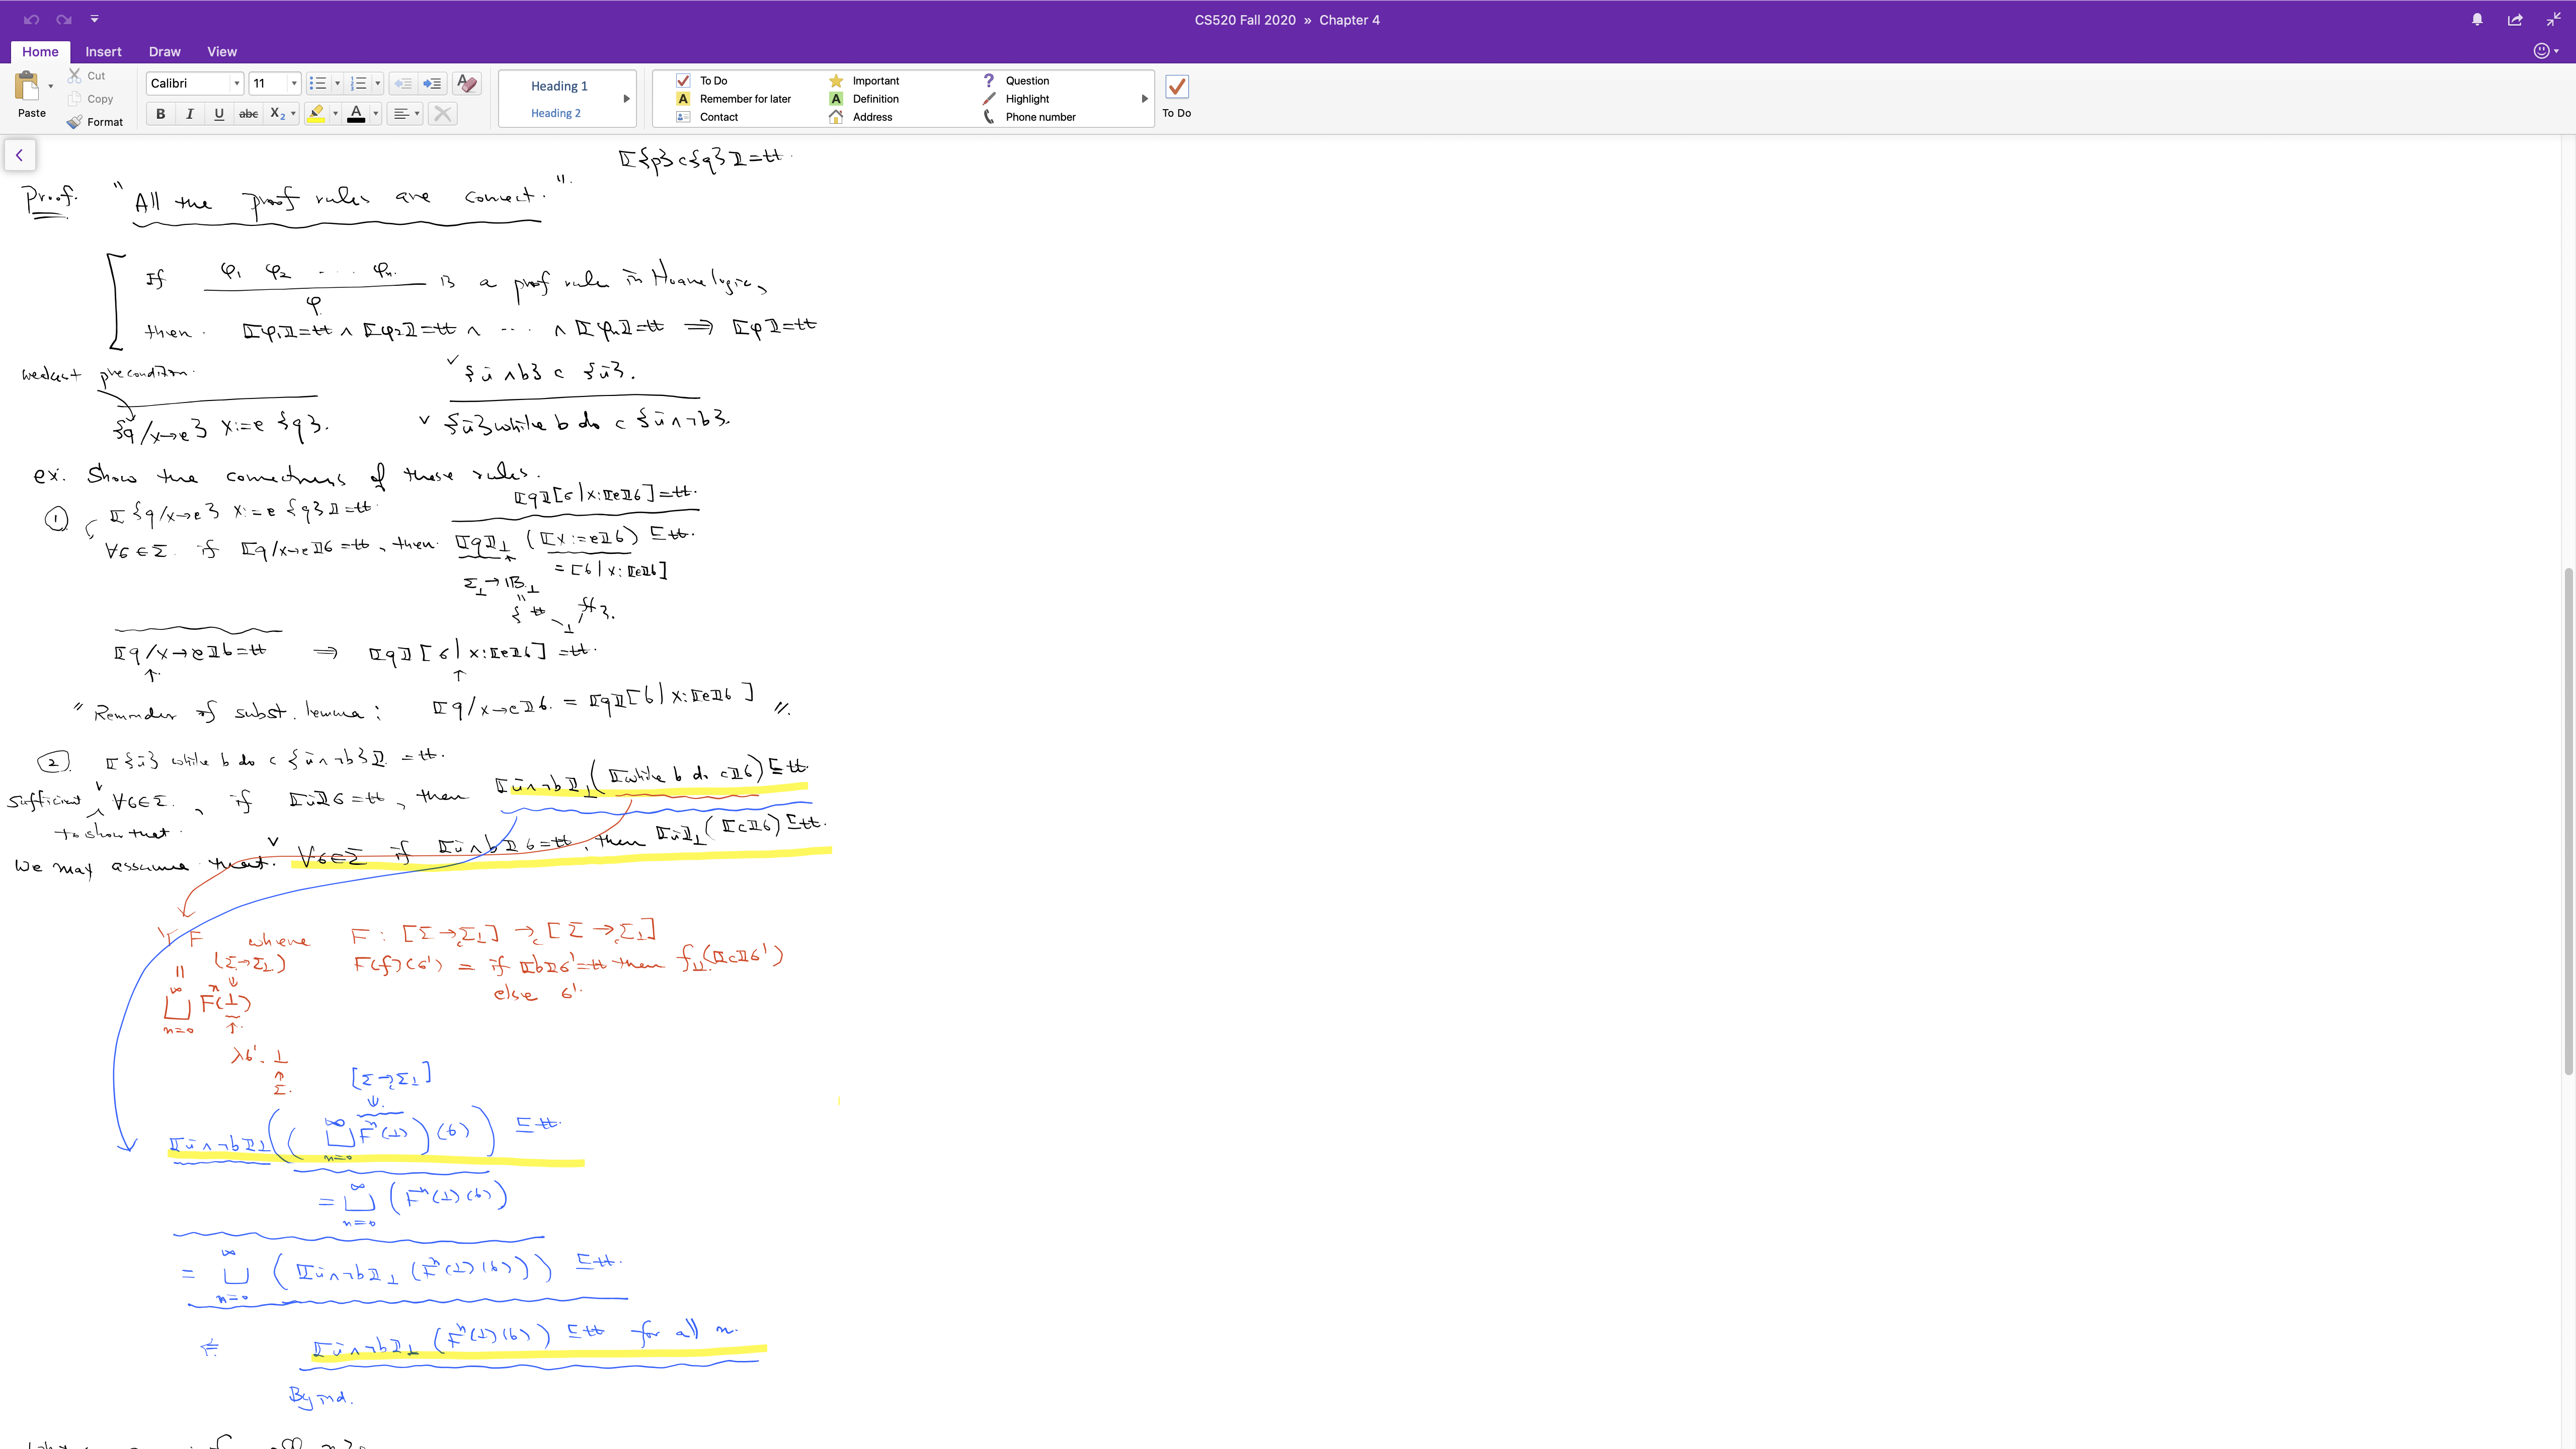 CS520 Fall 2020 » Chapter 4
Home Insert Draw View
Paste
Cut
Copy
Format
Calibri 11
B I U abc X₂ A
Heading 1
Heading 2
To Do
Remember for later
Contact
Important
Definition
Address
Question
Highlight
Phone number
To Do
⟦{p}c{q}⟧=tt.
Proof. "All the proof rules are correct.".
If φ₁ φ₂ ... φₙ / φ is a proof rule in Hoare logic,
then. ⟦φ₁⟧=tt ∧ ⟦φ₂⟧=tt ∧ ... ∧ ⟦φₙ⟧=tt ⟹ ⟦φ⟧=tt
weakest precondition.
✓ {i ∧ b} c {i}.
{q/x→e} x:=e {q}.
✓ {i} while b do c {i ∧ ¬b}.
ex. Show the correctness of these rules.
⟦q⟧[σ|x:⟦e⟧σ]=tt.
① ⟦{q/x→e} x:=e {q}⟧=tt
∀σ∈Σ. if ⟦q/x→e⟧σ=tt, then ⟦q⟧⊥ (⟦x:=e⟧σ) ⊑ tt.
= [σ|x:⟦e⟧σ]
Σ⊥→𝔹⊥
"
{tt ff}.
⊥
⟦q/x→e⟧σ=tt ⟹ ⟦q⟧[σ|x:⟦e⟧σ]=tt.
↑ ↑
"Reminder of subst. lemma: ⟦q/x→e⟧σ = ⟦q⟧[σ|x:⟦e⟧σ] ".
② ⟦{i} while b do c {i∧¬b}⟧ =tt.
sufficient to show that ∀σ∈Σ, if ⟦i⟧σ=tt, then ⟦i∧¬b⟧⊥(⟦while b do c⟧σ) ⊑ tt.
We may assume that. ∀σ∈Σ if ⟦i∧b⟧σ=tt, then ⟦i⟧⊥(⟦c⟧σ) ⊑ tt.
Y F where F : [Σ→cΣ⊥] →c [Σ→cΣ⊥]
(Σ→Σ⊥) F(f)(σ') = if ⟦b⟧σ'=tt then f⊥⊥(⟦c⟧σ')
else σ'.
⊔ n=0 ∞ Fⁿ(⊥)
↑
λσ'. ⊥
↑
Σ.
[Σ→cΣ⊥]
⟦i∧¬b⟧⊥((⊔ n=0 ∞ Fⁿ(⊥))(σ)) ⊑ tt.
= ⊔ n=0 ∞ (Fⁿ(⊥)(σ))
= ⊔ n=0 ∞ (⟦i∧¬b⟧⊥ (Fⁿ(⊥)(σ))) ⊑ tt.
⇐ ⟦i∧¬b⟧⊥ (Fⁿ(⊥)(σ)) ⊑ tt for all n.
By ind.